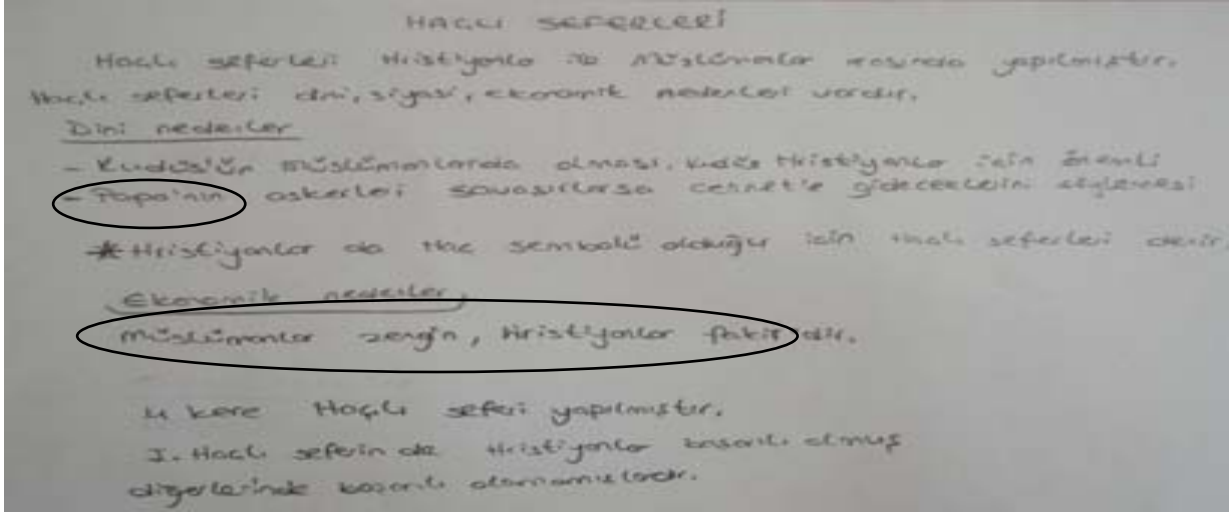 HAÇLI SEFERLERİ
Haçlı seferleri Hristiyanlar ile Müslümanlar arasında yapılmıştır.
Haçlı seferleri dini, siyasi, ekonomik nedenleri vardır.
Dini nedenler
- Kudüs'ün müslümanlarda olması. Kudüs Hristiyanlar için önemli
- Papa'nın askerleri savaşırlarsa cennet'e gideceklerini söylemesi
* Hristiyanlar da Haç sembolü olduğu için Haçlı seferleri denir.
Ekonomik nedenler
Müslümanlar zengin, Hristiyanlar fakirdir.
4 kere Haçlı seferi yapılmıştır.
I. Haçlı seferin de Hristiyanlar başarılı olmuş
diğerlerinde başarılı olamamışlardır.